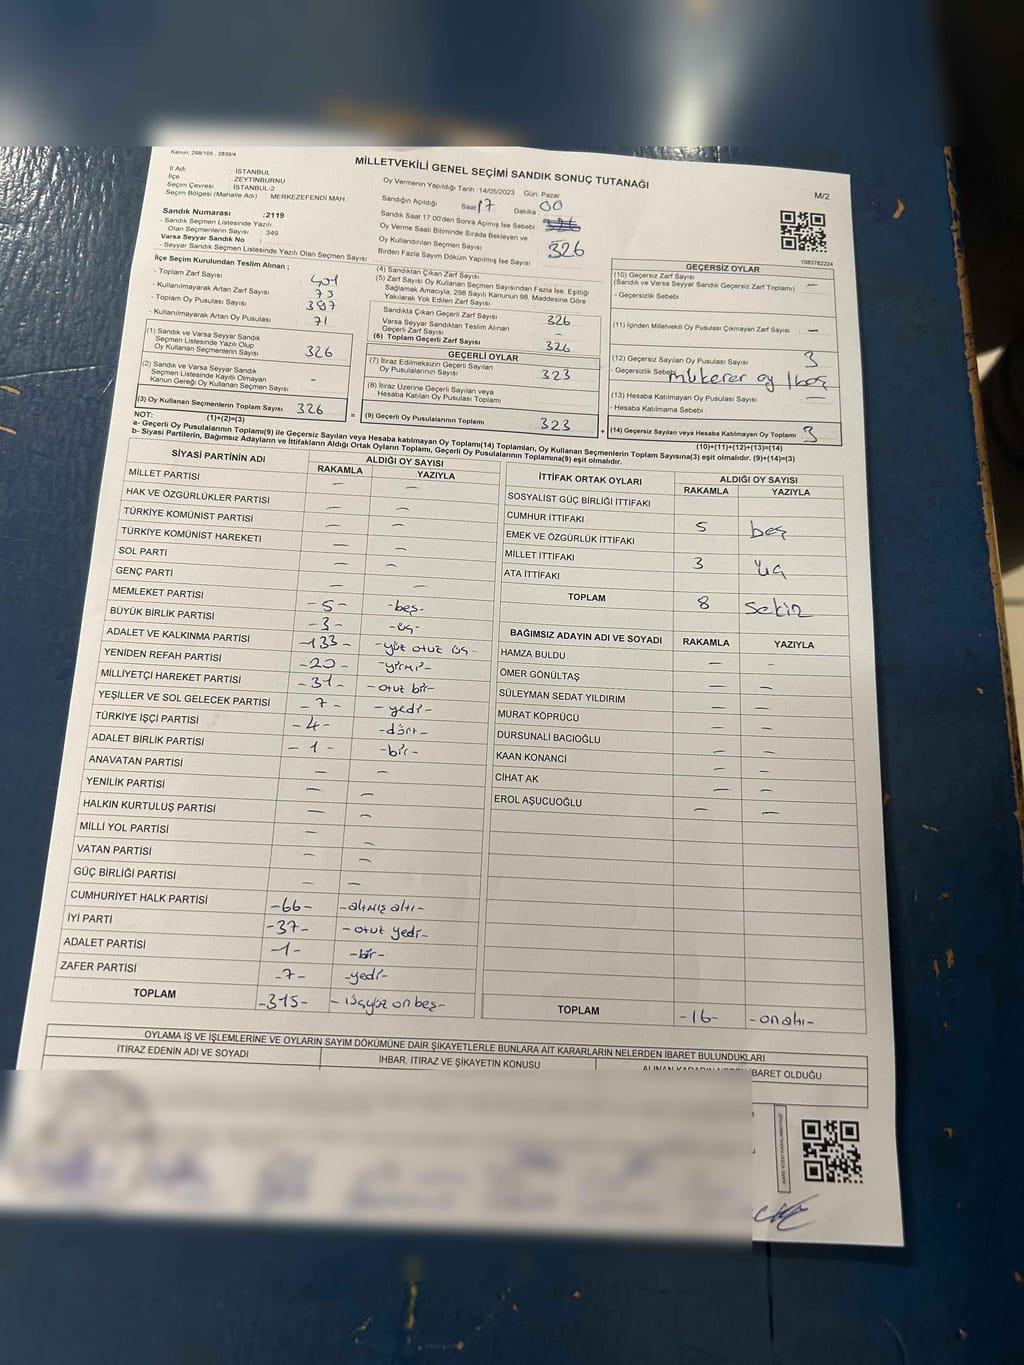 Kanun, 298/105 , 2839/4
MİLLETVEKİLİ GENEL SEÇİMİ SANDIK SONUÇ TUTANAĞI
M/2
İl Adı : İSTANBUL
İlçe : ZEYTİNBURNU
Seçim Çevresi : İSTANBUL-2
Seçim Bölgesi (Mahalle Adı) : MERKEZEFENDİ MAH.
Sandık Numarası :2119
- Sandık Seçmen Listesinde Yazılı
Olan Seçmenlerin Sayısı : 349
Varsa Seyyar Sandık No :
- Seyyar Sandık Seçmen Listesinde Yazılı Olan Seçmen Sayısı
Oy Vermenin Yapıldığı Tarih :14/05/2023 Gün: Pazar
Sandığın Açıldığı Saat 17 Dakika 00
Sandık Saat 17:00'den Sonra Açılmış İse Sebebi
Oy Verme Saati Bitiminde Sırada Bekleyen ve
Oy Kullandırılan Seçmen Sayısı 326
Birden Fazla Sayım Döküm Yapılmış İse Sayısı
1083782224
İlçe Seçim Kurulundan Teslim Alınan ;
- Toplam Zarf Sayısı 401
- Kullanılmayarak Artan Zarf Sayısı 75
- Toplam Oy Pusulası Sayısı 397
- Kullanılmayarak Artan Oy Pusulası 71
(1) Sandık ve Varsa Seyyar Sandık
Seçmen Listesinde Yazılı Olup
Oy Kullanan Seçmenlerin Sayısı 326
(2) Sandık ve Varsa Seyyar Sandık
Seçmen Listesinde Kayıtlı Olmayan
Kanun Gereği Oy Kullanan Seçmen Sayısı -
(3) Oy Kullanan Seçmenlerin Toplam Sayısı 326
(1)+(2)=(3)
(4) Sandıktan Çıkan Zarf Sayısı
(5) Zarf Sayısı Oy Kullanan Seçmen Sayısından Fazla İse, Eşitliği
Sağlamak Amacıyla, 298 Sayılı Kanunun 98. Maddesine Göre
Yakılarak Yok Edilen Zarf Sayısı
Sandıkta Çıkan Geçerli Zarf Sayısı 326
Varsa Seyyar Sandıktan Teslim Alınan
Geçerli Zarf Sayısı -
(6) Toplam Geçerli Zarf Sayısı 326
GEÇERLİ OYLAR
(7) İtiraz Edilmeksizin Geçerli Sayılan
Oy Pusulalarının Sayısı 323
(8) İtiraz Üzerine Geçerli Sayılan veya
Hesaba Katılan Oy Pusulalarının Toplamı
= (9) Geçerli Oy Pusulalarının Toplamı 323
GEÇERSİZ OYLAR
(10) Geçersiz Zarf Sayısı
(Sandık ve Varsa Seyyar Sandık Geçersiz Zarf Toplamı) -
- Geçersizlik Sebebi :
(11) İçinden Milletvekili Oy Pusulası Çıkmayan Zarf Sayısı -
(12) Geçersiz Sayılan Oy Pusulası Sayısı 3
- Geçersizlik Sebebi mükerer oy / boş
(13) Hesaba Katılmayan Oy Pusulası Sayısı -
- Hesaba Katılmama Sebebi :
+ (14) Geçersiz Sayılan veya Hesaba Katılmayan Oy Toplamı 3
(10)+(11)+(12)+(13)=(14)
NOT:
a- Geçerli Oy Pusulalarının Toplamı(9) ile Geçersiz Sayılan veya Hesaba katılmayan Oy Toplamı(14) Toplamları, Oy Kullanan Seçmenlerin Toplam Sayısına(3) eşit olmalıdır. (9)+(14)=(3)
b- Siyasi Partilerin, Bağımsız Adayların ve İttifakların Aldığı Ortak Oyların Toplamı, Geçerli Oy Pusulalarının Toplamına(9) eşit olmalıdır.
SİYASİ PARTİNİN ADI ALDIĞI OY SAYISI
RAKAMLA YAZIYLA
MİLLET PARTİSİ - -
HAK VE ÖZGÜRLÜKLER PARTİSİ - -
TÜRKİYE KOMÜNİST PARTİSİ - -
TÜRKİYE KOMÜNİST HAREKETİ - -
SOL PARTİ - -
GENÇ PARTİ - -
MEMLEKET PARTİSİ -5- -beş-
BÜYÜK BİRLİK PARTİSİ -3- -üç-
ADALET VE KALKINMA PARTİSİ -133- -yüz otuz üç-
YENİDEN REFAH PARTİSİ -20- -yirmi-
MİLLİYETÇİ HAREKET PARTİSİ -31- -otuz bir-
YEŞİLLER VE SOL GELECEK PARTİSİ -7- -yedi-
TÜRKİYE İŞÇİ PARTİSİ -4- -dört-
ADALET BİRLİK PARTİSİ -1- -bir-
ANAVATAN PARTİSİ - -
YENİLİK PARTİSİ - -
HALKIN KURTULUŞ PARTİSİ - -
MİLLİ YOL PARTİSİ - -
VATAN PARTİSİ - -
GÜÇ BİRLİĞİ PARTİSİ - -
CUMHURİYET HALK PARTİSİ -66- -altmış altı-
İYİ PARTİ -37- -otuz yedi-
ADALET PARTİSİ -1- -bir-
ZAFER PARTİSİ -7- -yedi-
TOPLAM -315- -üçyüz on beş-
İTTİFAK ORTAK OYLARI ALDIĞI OY SAYISI
RAKAMLA YAZIYLA
SOSYALİST GÜÇ BİRLİĞİ İTTİFAKI
CUMHUR İTTİFAKI 5 beş
EMEK VE ÖZGÜRLÜK İTTİFAKI
MİLLET İTTİFAKI 3 üç
ATA İTTİFAKI
TOPLAM 8 sekiz
BAĞIMSIZ ADAYIN ADI VE SOYADI RAKAMLA YAZIYLA
HAMZA BULDU - -
ÖMER GÖNÜLTAŞ - -
SÜLEYMAN SEDAT YILDIRIM - -
MURAT KÖPRÜCÜ - -
DURSUNALİ BACIOĞLU - -
KAAN KONANCİ - -
CİHAT AK - -
EROL AŞUCUOĞLU - -
TOPLAM -16- -onaltı-
OYLAMA İŞ VE İŞLEMLERİNE VE OYLARIN SAYIM DÖKÜMÜNE DAİR ŞİKAYETLERLE BUNLARA AİT KARARLARIN NELERDEN İBARET BULUNDUKLARI
İTİRAZ EDENİN ADI VE SOYADI İHBAR, İTİRAZ VE ŞİKAYETİN KONUSU ALINAN KARARIN NEDEN İBARET OLDUĞU